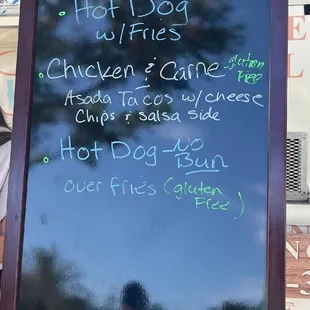 Hot Dog
w/Fries
Chicken & Carne -gluten Free
Asada Tacos w/cheese
Chips & salsa side
Hot Dog - NO Bun
over fries (gluten Free)